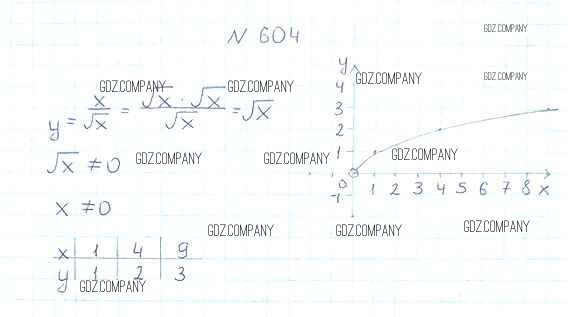 N 604
GDZ.COMPANY
GDZ.COMPANY GDZ.COMPANY GDZ.COMPANY GDZ.COMPANY
y = x/√x = √x · √x/√x = √x
√x ≠ 0
GDZ.COMPANY GDZ.COMPANY GDZ.COMPANY
x ≠ 0
GDZ.COMPANY GDZ.COMPANY GDZ.COMPANY
x 1 4 9
y 1 2 3
GDZ.COMPANY
y
4
3
2
1
0 1 2 3 4 5 6 7 8 x
-1